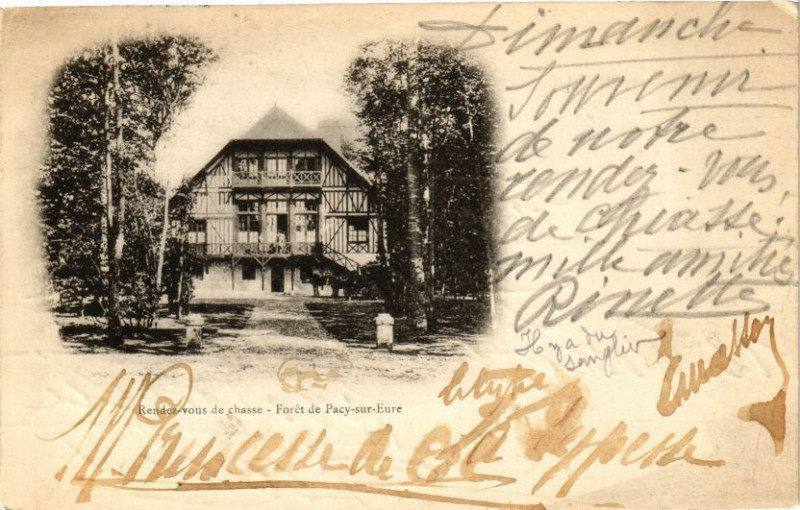 Dimanche
Souvenir
de notre
rendez-vous
de chasse.
mille amitiés
Rinette
Il y a du
sanglier
Rendez-vous de chasse - Forêt de Pacy-sur-Eure
Princesse de